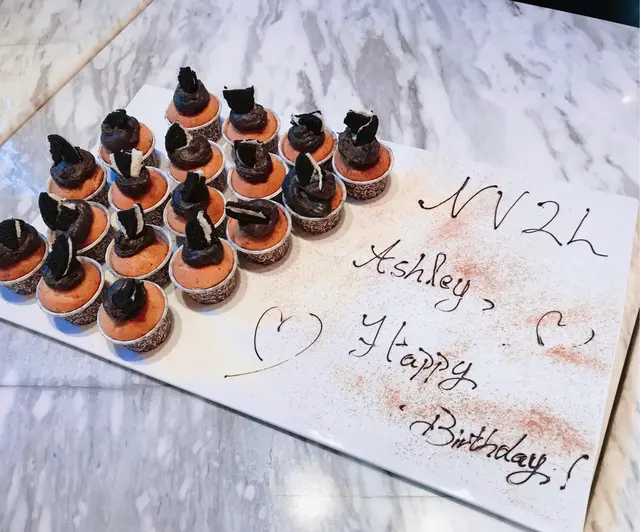 NV2L
Ashley,
Happy
Birthday!